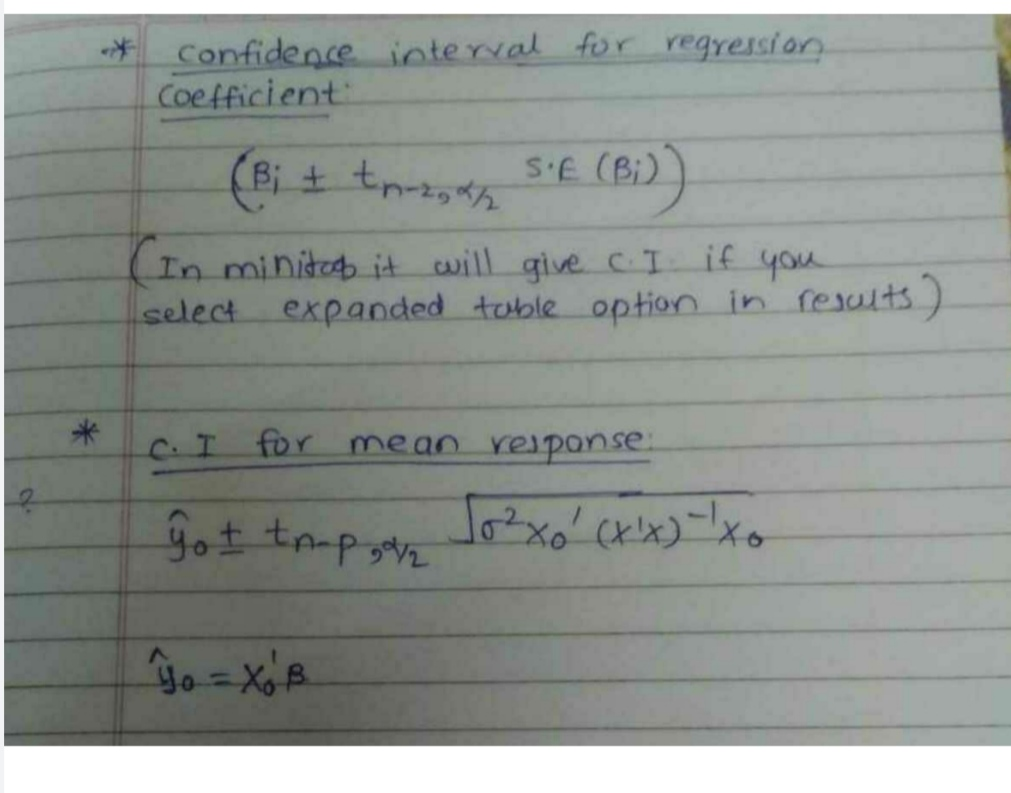 * confidence interval for regression
coefficient:
(βi ± tn-2, α/2 S.E (βi))
(In minitab it will give C.I. if you
select expanded table option in results)
* C.I for mean response:
?
ŷ₀ ± tn-p, α/2 √σ²x₀'(x'x)⁻¹x₀
ŷ₀ = x₀'β